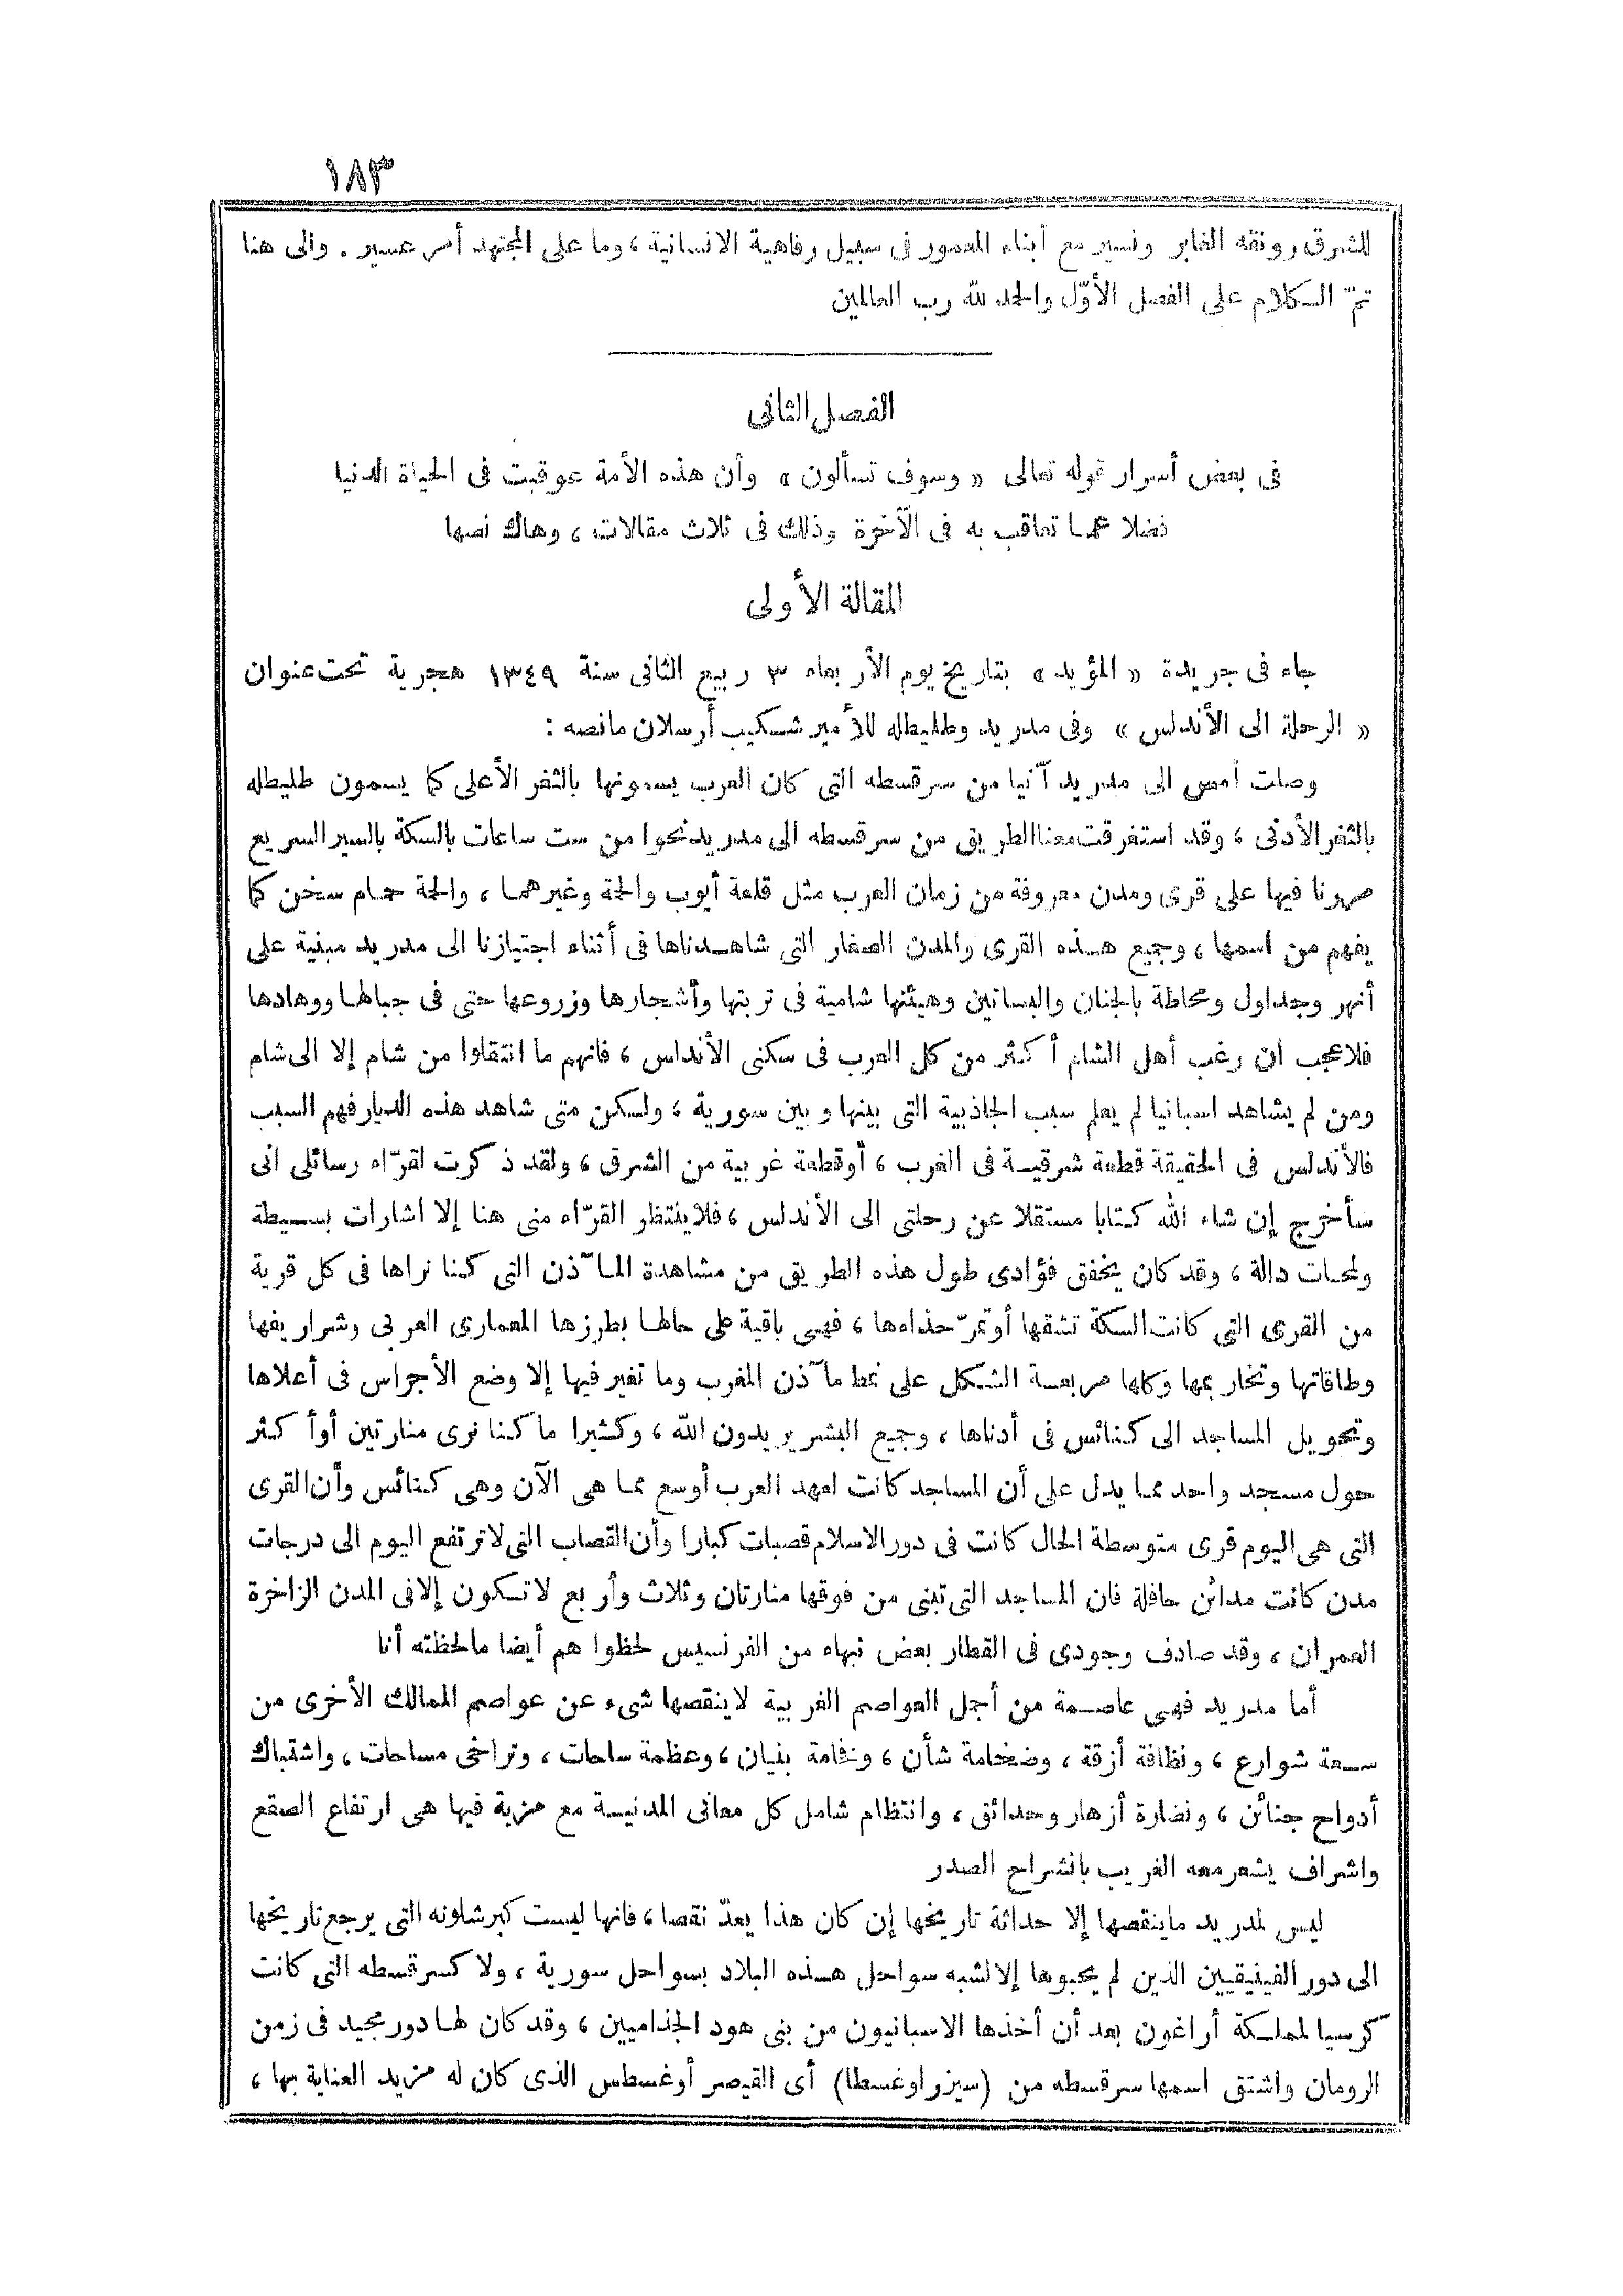 ١٨٣
للشرق رونقه الغابر ونسير مع أبناء العصور فى سبيل رفاهية الانسانية ، وما على المجتهد أمر عسير . والى هنا
تمّ الكلام على الفصل الأوّل والحمد لله رب العالمين
الفصل الثانى
فى بعض أسرار قوله تعالى « وسوف تسألون » وأن هذه الأمة عوقبت فى الحياة الدنيا
فضلا عما تعاقب به فى الآخرة وذلك فى ثلاث مقالات ، وهاك نصها
المقالة الأولى
جاء فى جريدة « المؤيد » بتاريخ يوم الأربعاء ٣ ربيع الثانى سنة ١٣٤٩ هجرية تحت عنوان
« الرحلة الى الأندلس » وفى مدريد وطليطله للأمير شكيب أرسلان مانصه :
وصلت أمس الى مدريد آنيا من سرقسطه التى كان العرب يسمونها بالثغر الأعلى كما يسمون طليطله
بالثغر الأدنى ، وقد استغرقت معنا الطريق من سرقسطه الى مدريد نحوا من ست ساعات بالسكة بالسير السريع
مررنا فيها على قرى ومدن معروفة من زمان العرب مثل قلعة أيوب والحمة وغيرهما ، والحمة حمام سخن كما
يفهم من اسمها ، وجميع هذه القرى والمدن الصغار التى شاهدناها فى أثناء اجتيازنا الى مدريد مبنية على
أنهر وجداول ومحاطة بالجنان والبساتين وهيئتها شامية فى تربتها وأشجارها وزروعها حتى فى جبالها ووهادها
فلا عجب ان رغب أهل الشام أكثر من كل العرب فى سكنى الأندلس ، فانهم ما انتقلوا من شام إلا الى شام
ومن لم يشاهد اسبانيا لم يعلم سبب الجاذبية التى بينها وبين سورية ، ولكن متى شاهد هذه الديار فهم السبب
فالأندلس فى الحقيقة قطعة شرقية فى الغرب ، أوقطعة غربية من الشرق ، ولقد ذكرت لقرّاء رسائلى انى
سأخرج إن شاء الله كتابا مستقلا عن رحلتى الى الأندلس ، فلا ينتظر القرّاء منى هنا إلا اشارات بسيطة
ولمحات دالة ، وقد كان يخفق فؤادى طول هذه الطريق من مشاهدة المآذن التى كنا نراها فى كل قرية
من القرى التى كانت السكة تشقها أوتمرّ حذاءها ، فهى باقية على حالها بطرزها المعمارى العربى وشراريفها
وطاقاتها وتخاريمها وكلها مربعة الشكل على نمط مآذن المغرب وما تغير فيها إلا وضع الأجراس فى أعلاها
وتحويل المساجد الى كنائس فى أدناها ، وجميع البشر يريدون الله ، وكثيرا ما كنا نرى منارتين أوأكثر
حول مسجد واحد مما يدل على أن المساجد كانت لعهد العرب أوسع مما هى الآن وهى كنائس وأن القرى
التى هى اليوم قرى متوسطة الحال كانت فى دور الاسلام قصبات كبارا وأن القصاب التى لاترتفع اليوم الى درجات
مدن كانت مدائن حافلة فان المساجد التى تبنى من فوقها منارتان وثلاث وأربع لاتكون إلا فى المدن الزاخرة
العمران ، وقد صادف وجودى فى القطار بعض نبهاء من الفرنسيس لحظوا هم أيضا مالحظته أنا
أما مدريد فهى عاصمة من أجل العواصم الغربية لاينقصها شىء عن عواصم الممالك الأخرى من
سعة شوارع ، ونظافة أزقة ، وضخامة شأن ، وفخامة بنيان ، وعظمة ساحات ، وتراخى مساحات ، واشتباك
أدواح جنائن ، ونضارة أزهار وحدائق ، وانتظام شامل كل معانى المدنية مع مزية فيها هى ارتفاع الصقع
واشراف يشعر معه الغريب بانشراح الصدر
ليس لمدريد ماينقصها إلا حداثة تاريخها إن كان هذا يعدّ نقصا ، فانها ليست كبرشلونه التى يرجع تاريخها
الى دور الفينيقيين الذين لم يحبوها إلا لشبه سواحل هذه البلاد بسواحل سورية ، ولا كسرقسطه التى كانت
كرسيا لمملكة أراغون بعد أن أخذها الاسبانيون من بنى هود الجذاميين ، وقد كان لها دور مجيد فى زمن
الرومان واشتق اسمها سرقسطه من (سيزر اوغسطا) أى القيصر أوغسطس الذى كان له مزيد العناية بها ،